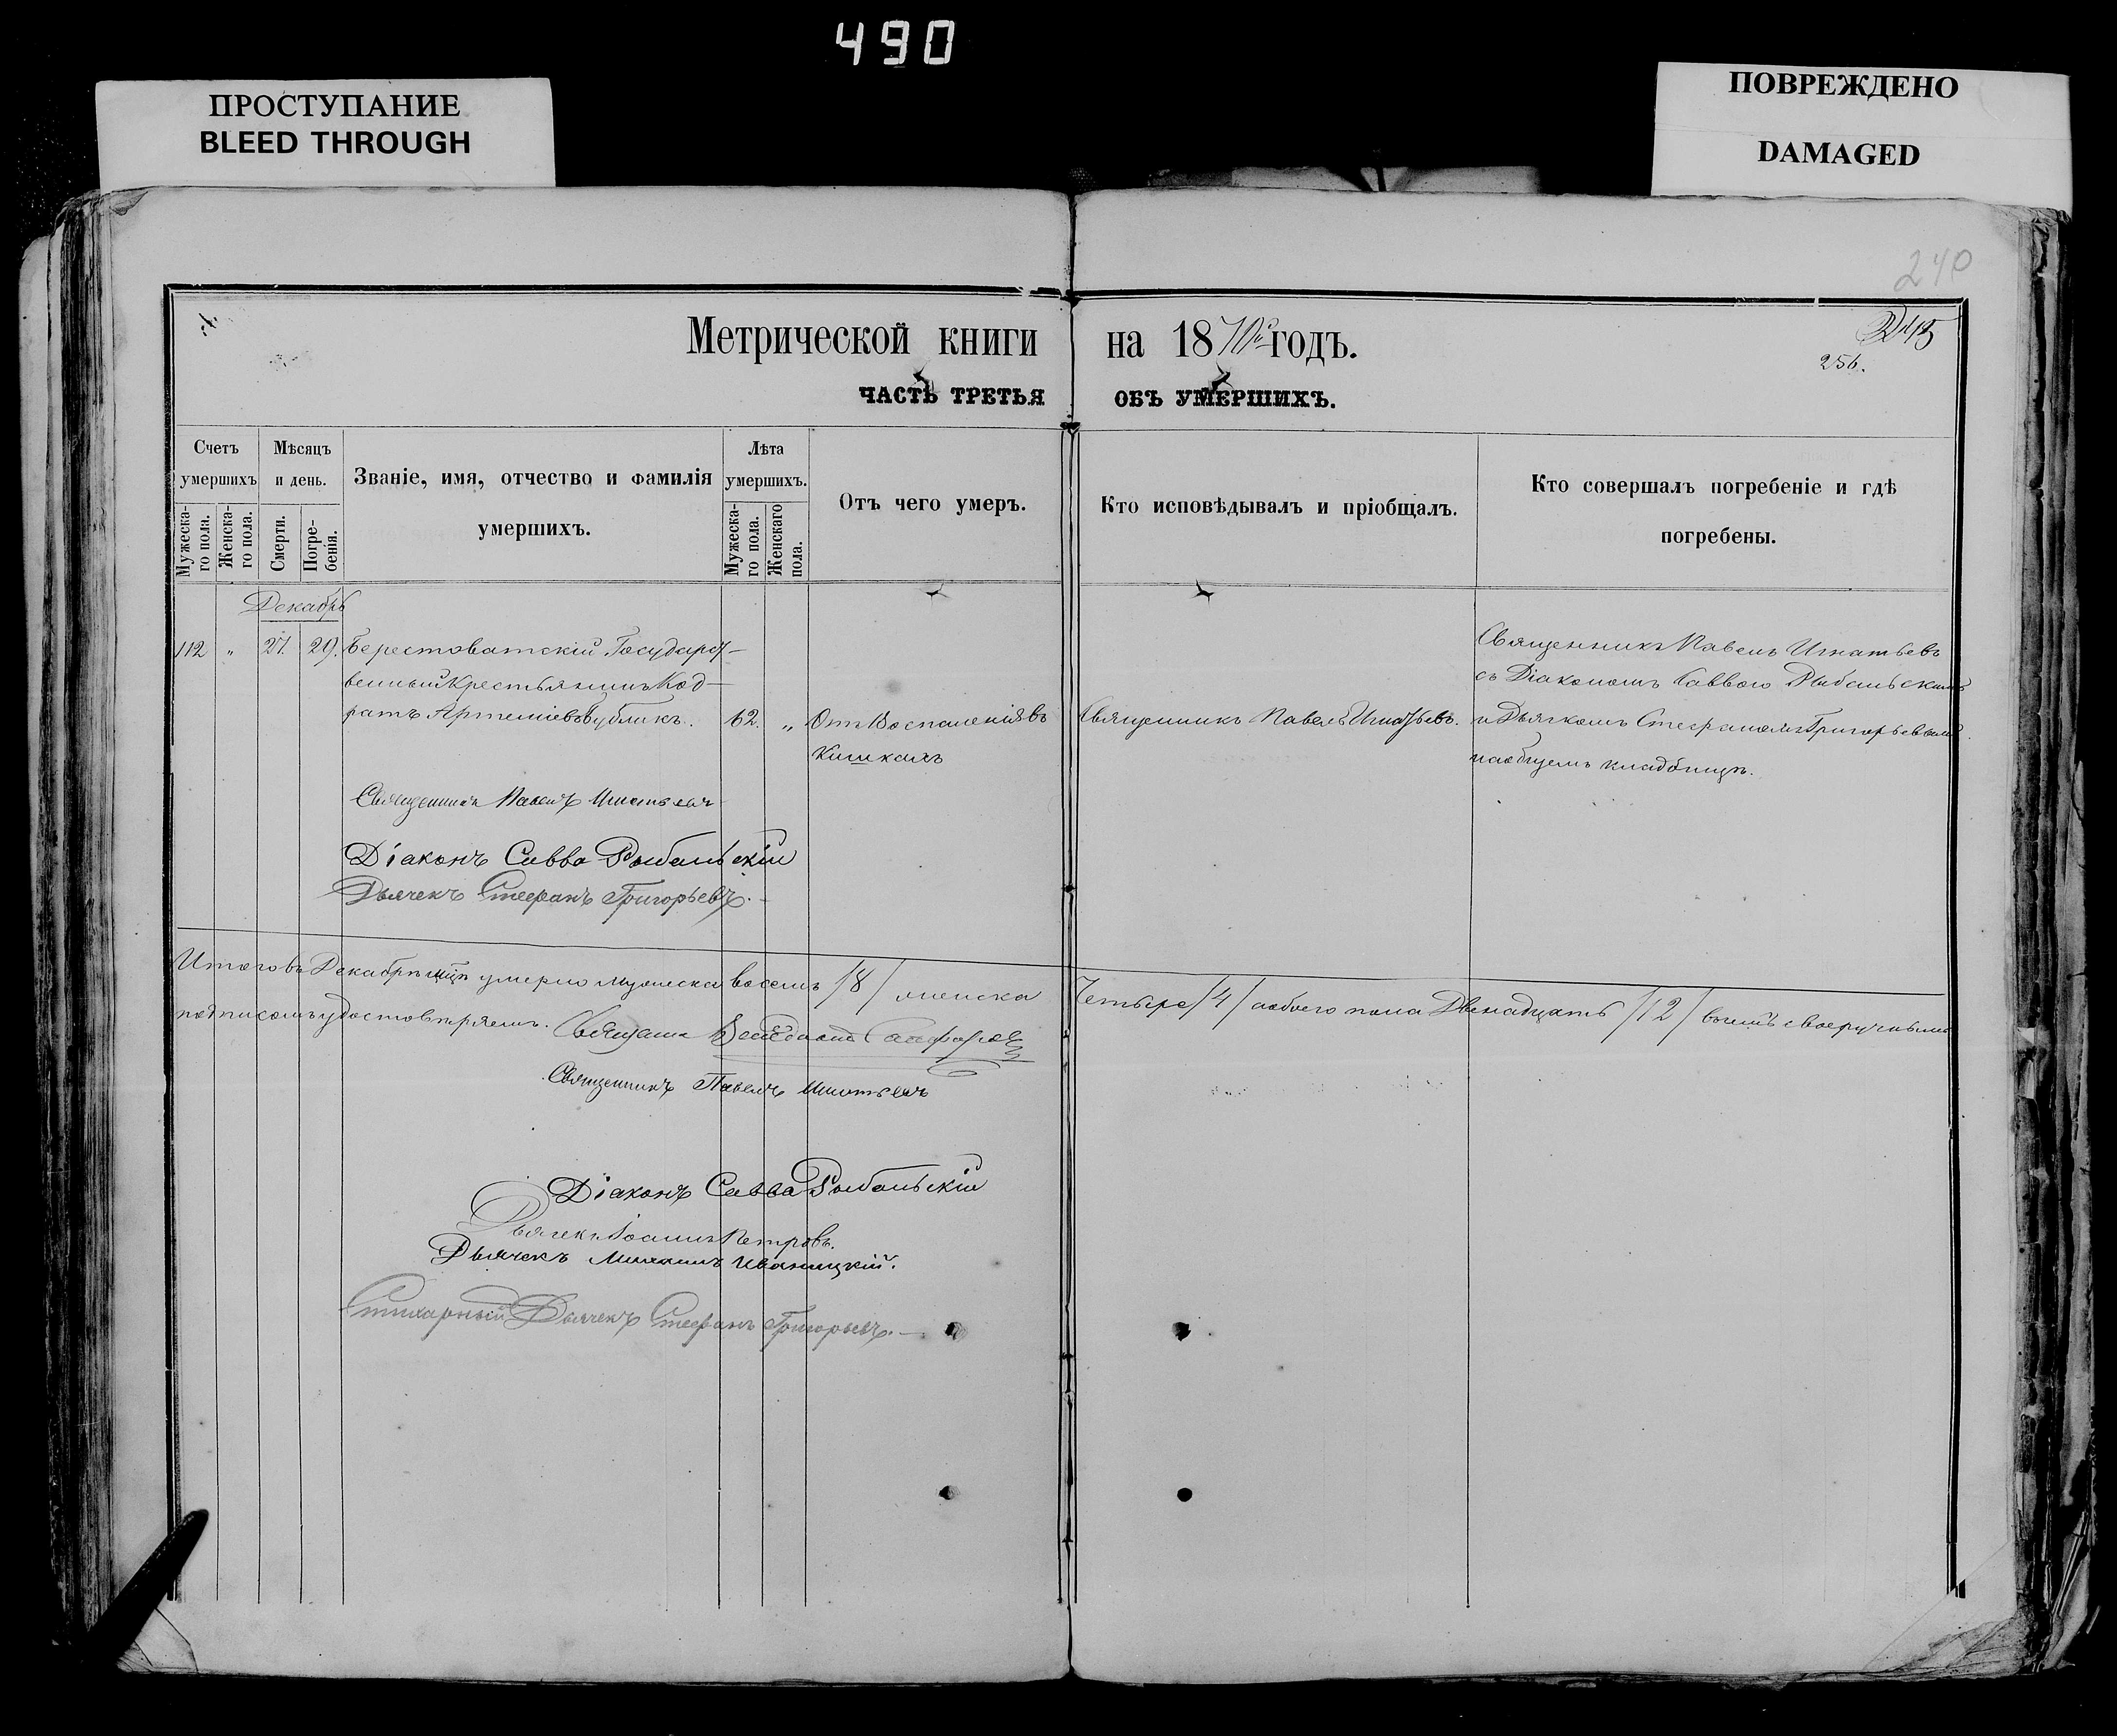 490
ПРОСТУПАНИЕ
BLEED THROUGH
ПОВРЕЖДЕНО
DAMAGED
240
Метрической книги на 1870й годъ.
256.
ЧАСТЬ ТРЕТЬЯ ОБЪ УМЕРШИХЪ.
Счетъ умершихъ
Мужеска-го пола.
Женска-го пола.
Мѣсяцъ и день.
Смерти.
Погре-бенія.
Званіе, имя, отчество и фамилія умершихъ.
Лѣта умершихъ.
Мужеска-го пола.
Женскаго пола.
Отъ чего умеръ.
Кто исповѣдывалъ и пріобщалъ.
Кто совершалъ погребеніе и гдѣ погребены.
Декабрь
112 " 27. 29. Берестоватскій Государст-
венный Крестьянинъ Код-
ратъ Артеміевъ Бубликъ. 62. " Отъ Воспаленія въ
Кишкахъ
Священникъ Павелъ Игнатьевъ.
Священникъ Павелъ Игнатьевъ
съ Діакономъ Саввою Рыбальскимъ
и Дьячкомъ Стефаномъ Григорьевымъ
на общемъ кладбищѣ.
Священникъ Павелъ Игнатьевъ
Діаконъ Савва Рыбальскій
Дьячекъ Стефанъ Григорьевъ.
Итого въ Декабрѣ мцѣ умерло мужеска восемь /8/ женска Четыре /4/ а обоего пола Двенадцать /12/ въ чемъ своеручнымъ
подписомъ удостовѣряемъ.
Священникъ Павелъ Игнатьевъ
Діаконъ Савва Рыбальскій
Дьячекъ Іоаннъ Петровъ.
Дьячекъ Михаилъ Иваницкій.
Стихарный Дьячекъ Стефанъ Григорьевъ.